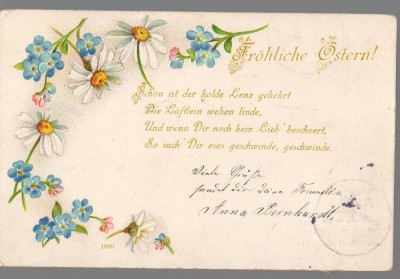 Fröhliche Ostern!
Schon ist der holde Lenz gekehrt
Die Lüftlein wehen linde,
Und wenn Dir noch kein Lieb' bescheert,
So such' Dir eins geschwinde, geschwinde.
Viele Grüße
sendet dir deine Freundin
Anna Bernhardt.
1900